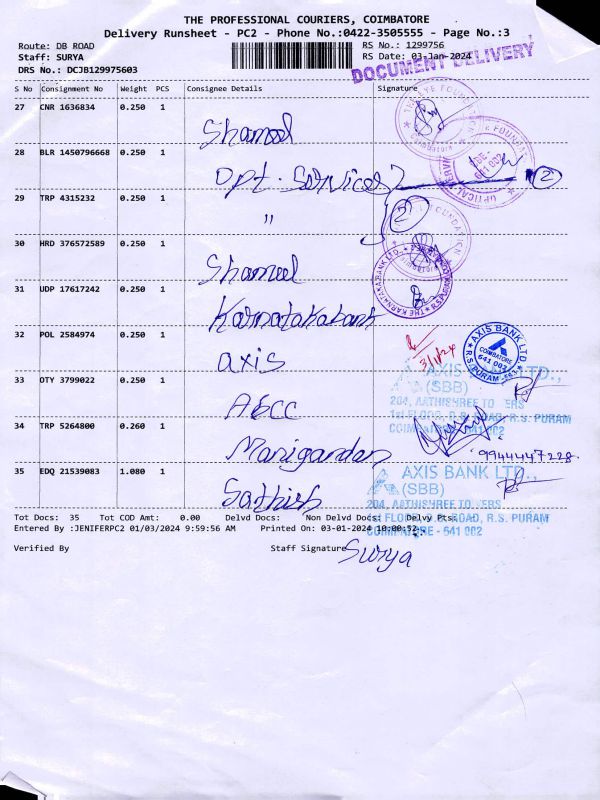 THE PROFESSIONAL COURIERS, COIMBATORE
Delivery Runsheet - PC2 - Phone No.:0422-3505555 - Page No.:3
Route: DB ROAD
RS No.: 1299756
Staff: SURYA
RS Date: 03-Jan-2024
DRS No.: DCJB129975603
DOCUMENT DELIVERY
S No Consignment No Weight PCS Consignee Details Signature
27 CNR 1636834 0.250 1
Shameel
28 BLR 1450796668 0.250 1
Opt. Services 2
29 TRP 4315232 0.250 1
" 2
30 HRD 376572589 0.250 1
Shameel
31 UDP 17617242 0.250 1
Karnatakabank
32 POL 2584974 0.250 1
axis
3/1/24
AXIS BANK LTD.
COIMBATORE
641 002
R.S. PURAM
33 OTY 3799022 0.250 1
AXIS BANK LTD.,
(SBB)
204, AATHISHREE TOWERS
1st FLOOR, R.S. PURAM
COIMBATORE - 641 002
34 TRP 5264800 0.260 1
Manigandan
9944447228
35 EDQ 21539083 1.080 1
Sathish
AXIS BANK LTD.,
(SBB)
204, AATHISHREE TOWERS
1st FLOOR, D.B. ROAD, R.S. PURAM
COIMBATORE - 641 002
Tot Docs: 35 Tot COD Amt: 0.00 Delvd Docs: Non Delvd Docs: Delvy Pts:
Entered By :JENIFERPC2 01/03/2024 9:59:56 AM Printed On: 03-01-2024 10:00:52
Verified By Staff Signature Surya